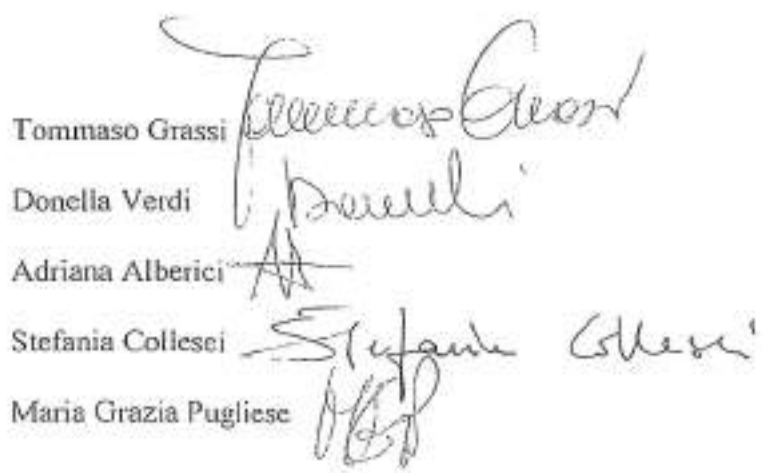 Tommaso Grassi Tommaso Grassi
Donella Verdi
Adriana Alberici AA
Stefania Collesei Stefania Collesei
Maria Grazia Pugliese MGP